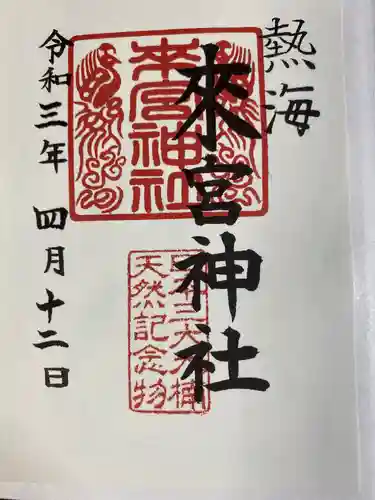 熱海
來宮神社
令和三年 四月十二日
來宮神社
天然記念物